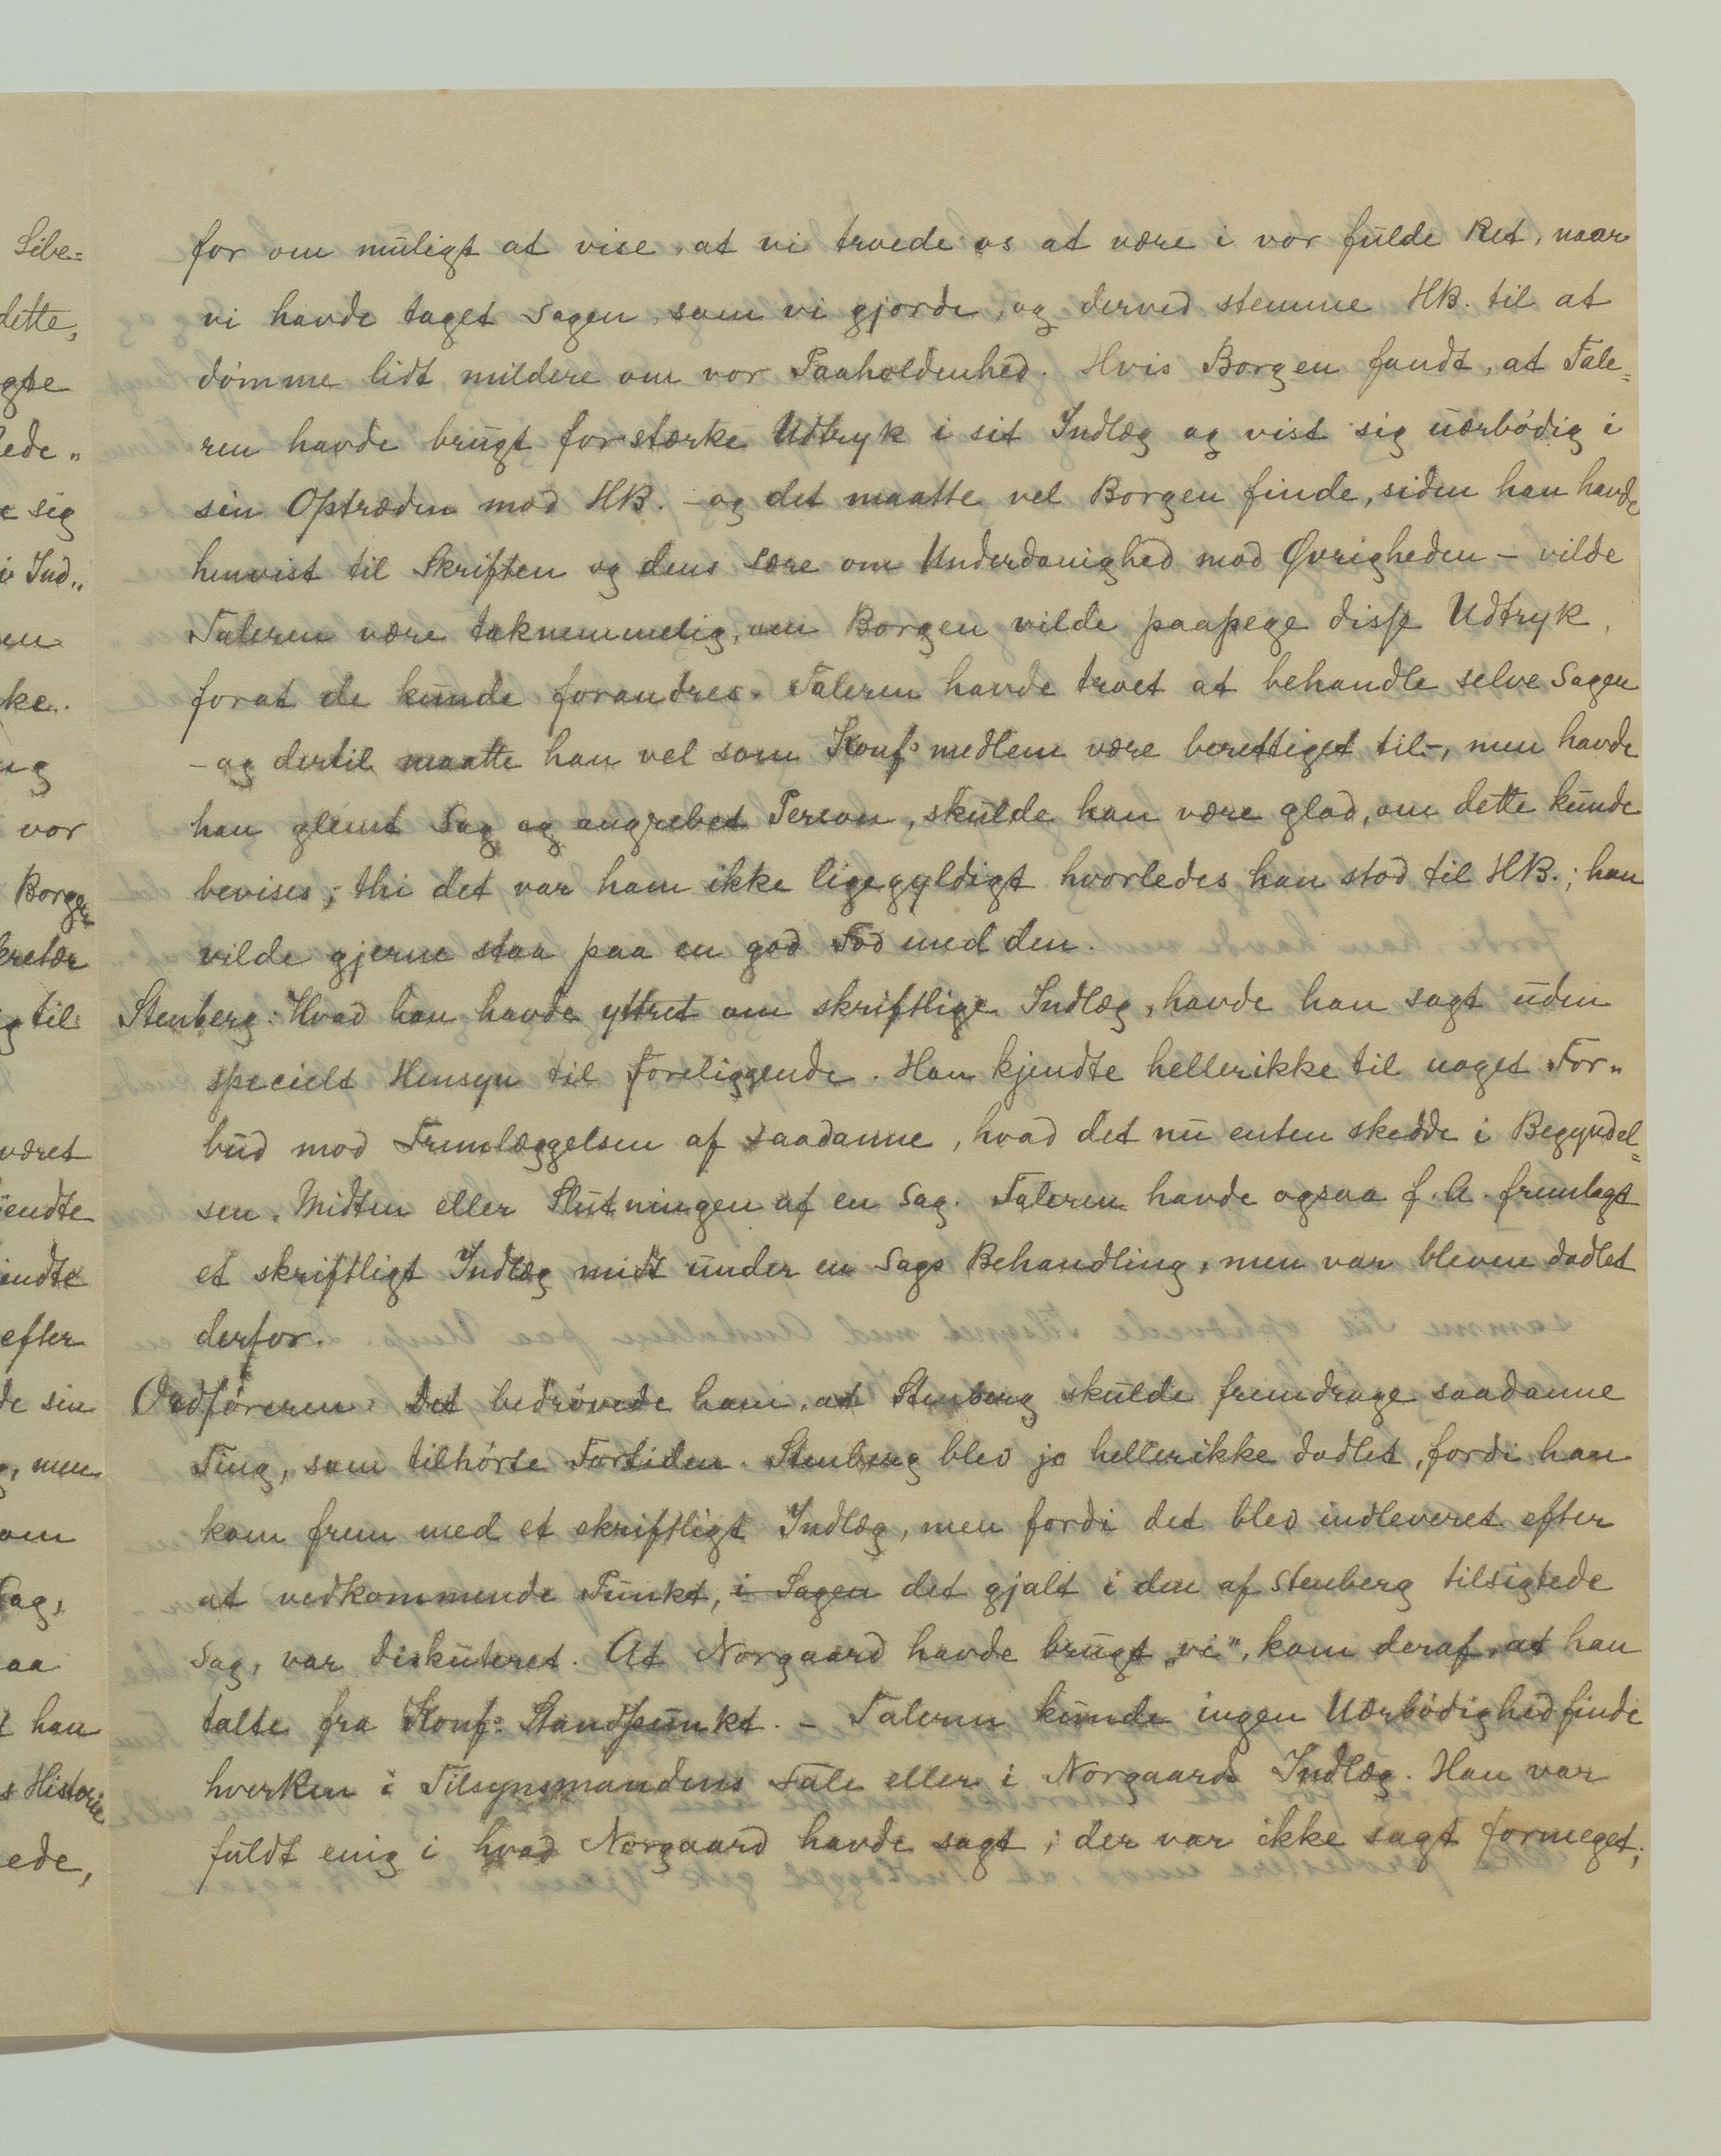 for om muligt at vise, at vi troede os at være i vor fulde Ret, naar
vi havde taget Sagen, som vi gjorde, og derved stemme HB. til at
dömme lidt mildere om vor Paaholdenhed. Hvis Borgen fandt, at Tale=
ren havde brugt for stærke Udtryk i sit Indlæg og vist sig uærbödig i
sin Optræden mod HB. - og det maatte vel Borgen finde, siden han havde
henvist til Skriften og dens Lære om Underdanighed mod Øvrigheden - vilde
Taleren være taknemmelig, om Borgen vilde paapege disse Udtryk,
forat de kunde forandres. Taleren havde troet at behandle selve Sagen
- og dertil maatte han vel som Konf: medlem være berettiget til -, men havde
han glemt Sag og angrebet Person, skulde han være glad, om dette kunde
bevises; thi det var ham ikke ligegyldigt hvorledes han stod til HB.; han
vilde gjerne staa paa en god Fod med den.
Stenberg: Hvad han havde yttret om skriftlige Indlæg, havde han sagt uden
specielt Hensyn til foreliggende. Han kjendte hellerikke til noget For„
bud mod Fremlæggelsen af saadanne, hvad det nu enten skedde i Begyndel=
sen, Midten eller Slutningen af en Sag. Taleren havde ogsaa f. A. fremlagt
et skriftligt Indlæg midt under en Sags Behandling, men var bleven dadlet
derfor.
Ordföreren: Det bedrövede ham, at Stenberg skulde fremdrage saadanne
Ting, som tilhörte Fortiden. Stenberg blev jo hellerikke dadlet, fordi han
kom frem med et skriftligt Indlæg, men fordi det blev indleveret efter
at vedkommende Punkt, i Sagen det gjalt i den af Stenberg tilsigtede
Sag, var diskuteret. At Norgaard havde brugt „vi”, kom deraf, at han
talte fra Konf: Standpunkt. - Taleren kunde ingen Uærbödighed finde
hverken i Tilsynsmandens Tale eller i Norgaards Indlæg. Han var
fuldt enig i hvad Norgaard havde sagt; der var ikke sagt formeget;